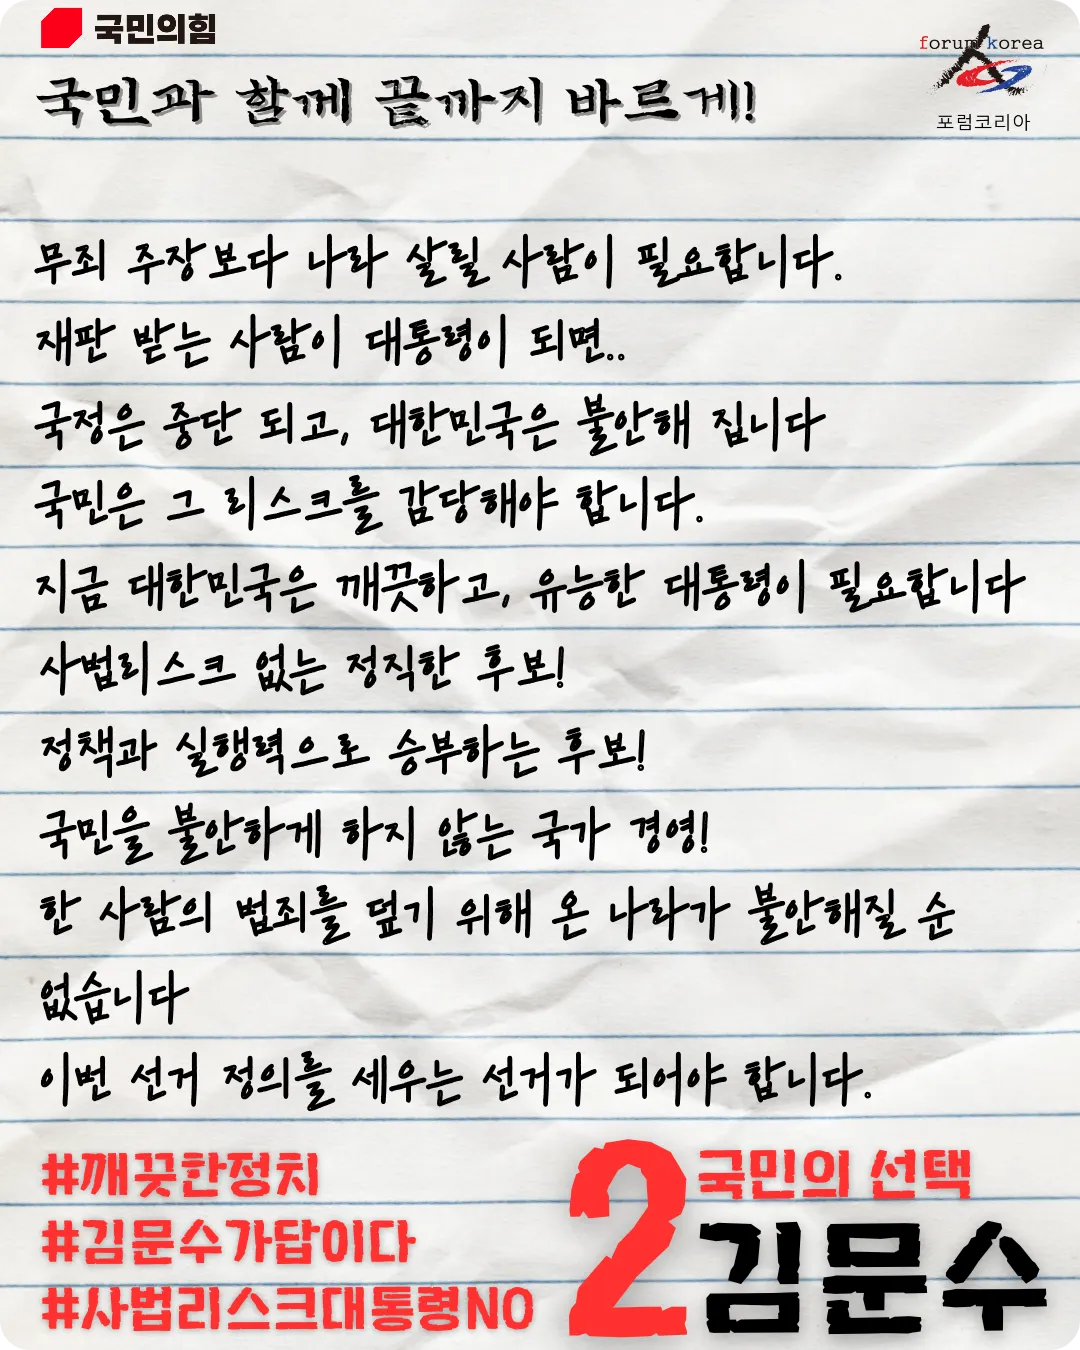 국민의힘
forum korea
포럼코리아
국민과 함께 끝까지 바르게!
무죄 주장보다 나라 살릴 사람이 필요합니다.
재판 받는 사람이 대통령이 되면..
국정은 중단 되고, 대한민국은 불안해 집니다
국민은 그 리스크를 감당해야 합니다.
지금 대한민국은 깨끗하고, 유능한 대통령이 필요합니다
사법리스크 없는 정직한 후보!
정책과 실행력으로 승부하는 후보!
국민을 불안하게 하지 않는 국가 경영!
한 사람의 범죄를 덮기 위해 온 나라가 불안해질 순
없습니다
이번 선거 정의를 세우는 선거가 되어야 합니다.
#깨끗한정치
#김문수가답이다
#사법리스크대통령NO
2
국민의 선택
김문수